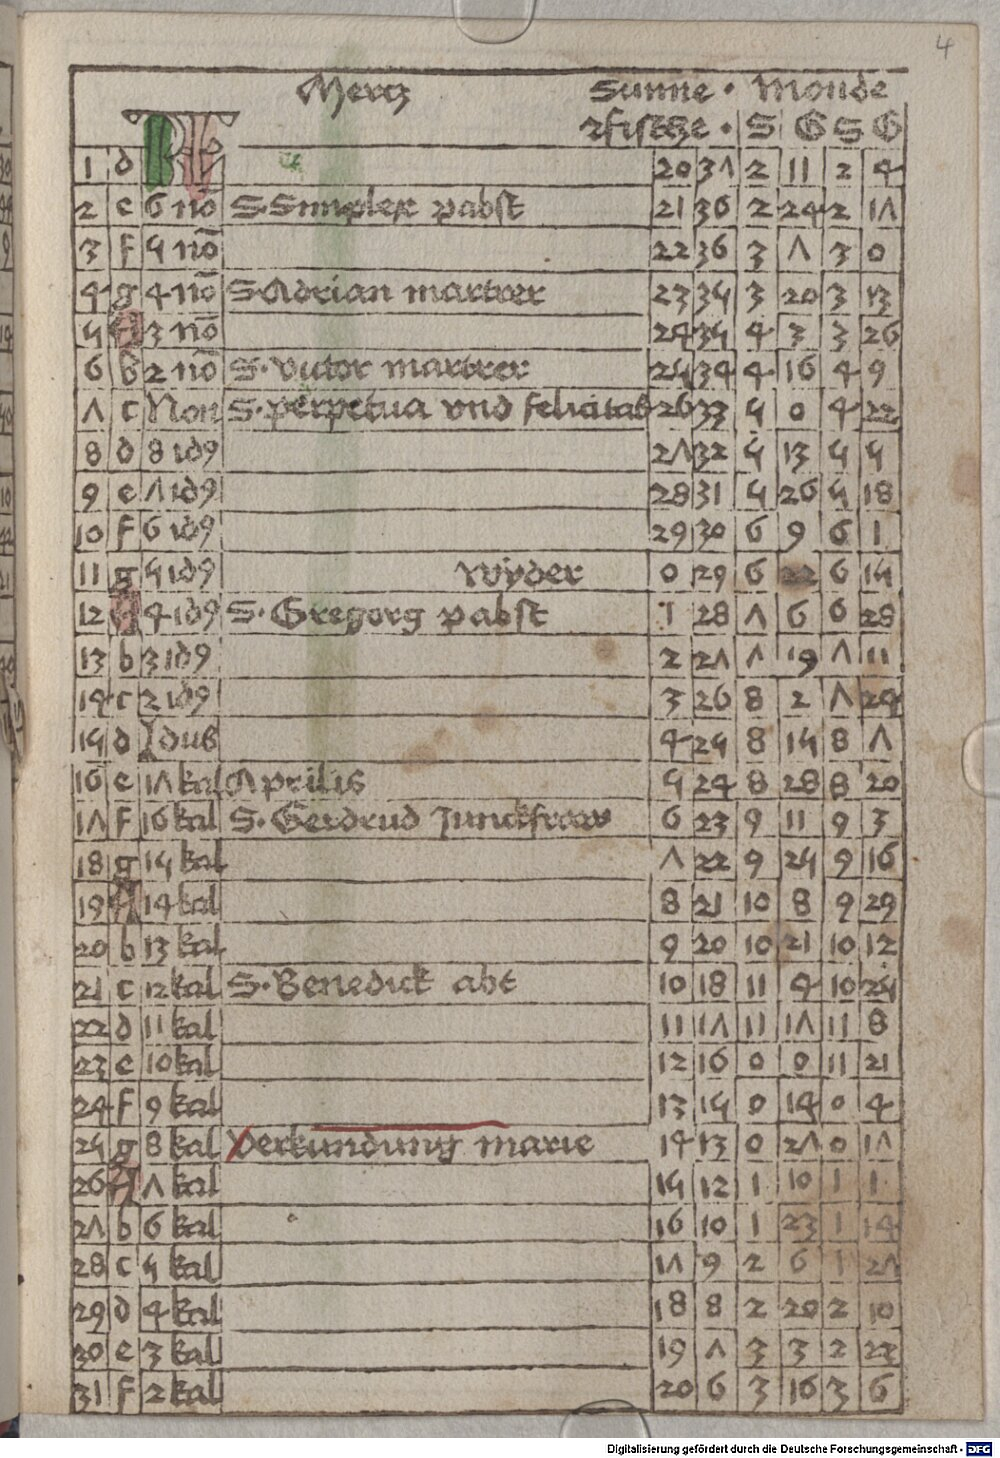 4
Mertz Sunne · Monde
KL zfische · S G S G
1 d 20 37 2 11 2 4
2 e 6 nō S. Simplex pabst 21 36 2 24 2 17
3 f 5 nō 22 36 3 7 3 0
4 g 4 nō S. Adrian martrer 23 35 3 20 3 13
5 A 3 nō 24 35 4 3 3 26
6 b 2 nō S. Victor martrer 25 34 4 16 4 9
7 c Non S. perpetua vnd felicitas 26 33 5 0 4 22
8 d 8 id9 27 32 5 13 5 5
9 e 7 id9 28 31 5 26 5 18
10 f 6 id9 29 30 6 9 6 1
11 g 5 id9 wyder 0 29 6 22 6 15
12 A 4 id9 S. Gregorg pabst 1 28 7 6 6 28
13 b 3 id9 2 27 7 19 7 11
14 c 2 id9 3 26 8 2 7 24
15 d Idus 4 25 8 15 8 7
16 e 17 kal Aprilis 5 24 8 28 8 20
17 f 16 kal S. Gerdrud Junckfraw 6 23 9 11 9 3
18 g 15 kal 7 22 9 25 9 16
19 A 14 kal 8 21 10 8 9 29
20 b 13 kal 9 20 10 21 10 12
21 c 12 kal S. Benedick abt 10 18 11 4 10 25
22 d 11 kal 11 17 11 17 11 8
23 e 10 kal 12 16 0 0 11 21
24 f 9 kal 13 15 0 14 0 4
25 g 8 kal Verkundung marie 14 13 0 27 0 17
26 A 7 kal 15 12 1 10 1 1
27 b 6 kal 16 10 1 23 1 14
28 c 5 kal 17 9 2 6 1 27
29 d 4 kal 18 8 2 20 2 10
30 e 3 kal 19 7 3 3 2 23
31 f 2 kal 20 6 3 16 3 6
Digitalisierung gefördert durch die Deutsche Forschungsgemeinschaft - DFG